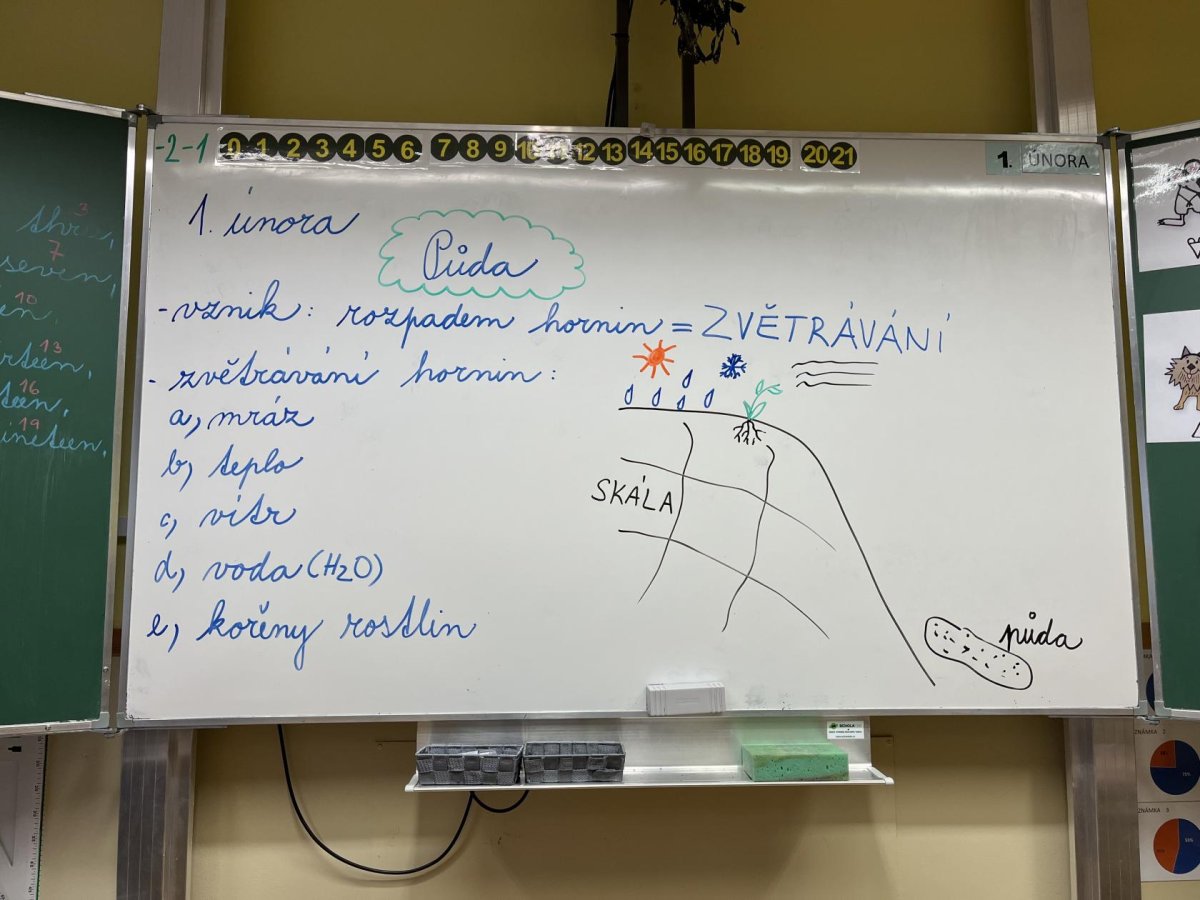 -2-1 0 1 2 3 4 5 6 7 8 9 10 11 12 13 14 15 16 17 18 19 20 21
1. ÚNORA
1. února
Půda
- vznik: rozpadem hornin = ZVĚTRÁVÁNÍ
- zvětrávání hornin:
a, mráz
b, teplo
c, vítr
d, voda (H2O)
e, kořeny rostlin
SKÁLA
půda
3
7
seven,
10
13
16
19
SCHOLA
ZNÁMKA 2
ZNÁMKA 3